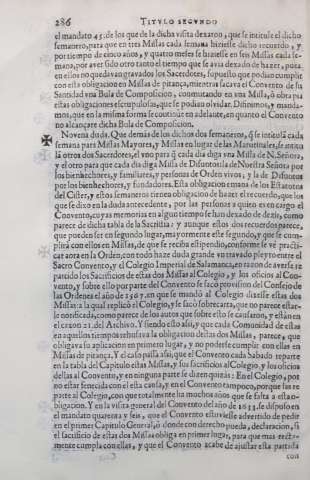 286 TITVLO SEGVNDO
el mandato 45. de los que de la dicha visita dexaron, que se intitule el dicho
semanero, para que en tres Missas cada semana hiziesse dicho recuerdo, y
por tiempo de cinco años, y quatro meses se hiziesse en seis Missas cada se-
mana, por aver sido otro tanto el tiempo que se avia dexado de hazer, pues
en ellos no quedavan gravados los Sacerdotes, supuesto que podian cumplir
con esta obligacion en Missas de pitança, mientras sacava el Convento de su
Santidad vna Bula de Composicion, conmutando en vna Missa, ò obra pia
estas obligaciones escrupulosas, que se podian olvidar. Difinimos, y manda-
mos, que en la misma forma se continue en adelante, en quanto el Convento
no alcançare dicha Bula de Composicion.
Novena duda. Que demás de los dichos dos semaneros, q̃ se intitulã cada
semana para Missas Mayores, y Missas en lugar de las Matutinales, se intitu
lã otros dos Sacerdotes, el vno para q̃ cada dia diga vna Missa de N. Señora,
y el otro para que cada dia diga Missa de Difuntos, la de Nuestra Señora por
los bienhechores, y familiares, y personas de Orden vivos, y la de Difuntos
por los bienhechores, y fundadores. Esta obligacion emana de los Estatutos
del Cister, y estos semaneros tienen obligacion de hazer el recuerdo, que los
que se dixo en la duda antecedente, por las personas a quien es en cargo el
Convento, cuyas memorias en algun tiempo se han dexado de dezir, como
parece de dicha tabla de la Sacristia: y aunque estos dos recuerdos parece,
que pueden ser en segundo lugar, muy comunmente el segundo, y que se cum-
plirá con ellos en Missas, de que se reciba estipendio, conforme se vè practi-
car aora en la Orden, con todo haze duda grande vn travado pleyto entre el
Sacro Convento, y el Colegio Imperial de Salamanca, en razon de averse re
partido los Sacrificios de estas dos Missas al Colegio, y los oficios al Con-
vento, y sobre ello por parte del Convento se sacò provision del Consejo de
las Ordenes el año de 1567. en que se mandò al Colegio dixesse estas dos
Missas: a la qual replicò el Colegio, y se sacò sobrecarta, que no parece estar-
le notificada, como parece de los autos que sobre esto se causaron, y estàn en
el caxon 21. del Archivo. Y siendo esto assi, y que cada Comunidad de estas
en aquellos tiempos rehusava la obligacion destas dos Missas, parece, que
obligava su aplicacion en primero lugar, y no poderse cumplir con ellas en
Missas de pitança. Y el caso passa assi, que el Convento cada Sabado reparte
en la tabla del Capitulo estas Missas, y los sacrificios al Colegio, y los oficios
dellas al Convento, y en ninguna parte se dizen quizás: En el Colegio, por
no estar fenecida con el esta causa, y en el Convento tampoco, porque las re
parte al Colegio, con que totalmente ha muchos años que se falta a esta o-
bligacion. Y en la visita general del Convento del año de 1653. se dispuso en
el mandato quarenta y seis, que el Convento estuviesse advertido de pedir
en el primer Capitulo General, ò donde con derecho pueda, declaracion, si
el sacrificio de estas dos Missas obliga en primer lugar, para que mas recta-
mente cumpla con ellas, y que el Convento acabe de ajustar esta partida
con